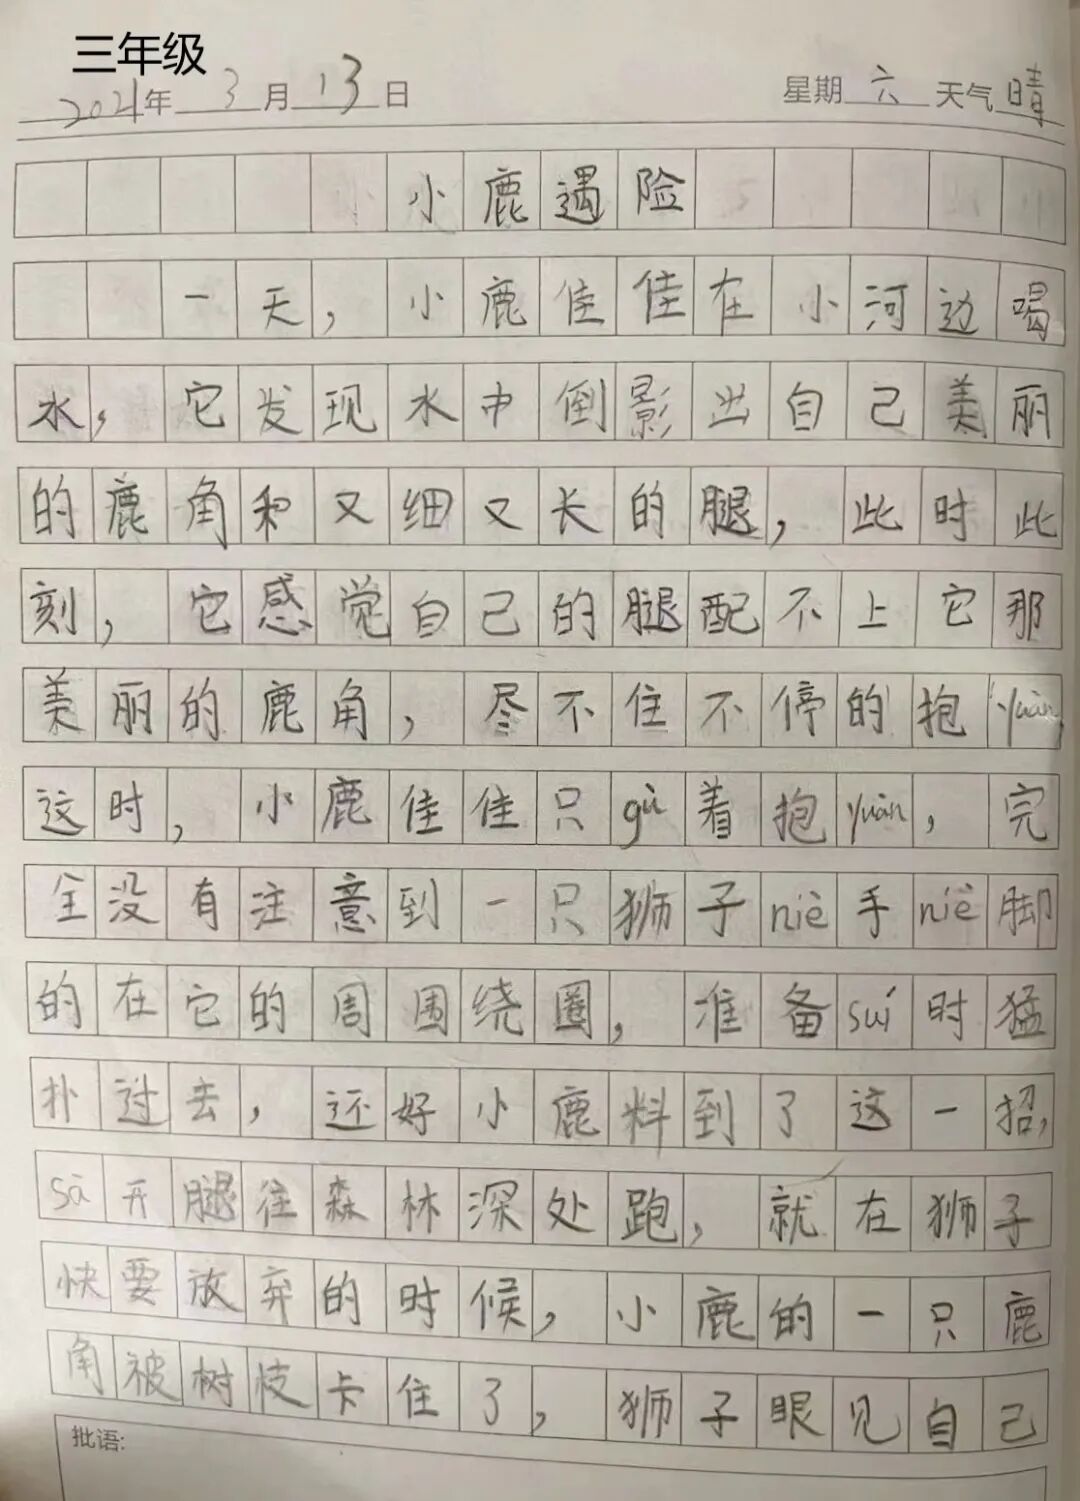 三年级
2021年 3月13日 星期六 天气晴
小鹿遇险
一天，小鹿佳佳在小河边喝
水，它发现水中倒影出自己美丽
的鹿角和又细又长的腿，此时此
刻，它感觉自己的腿配不上它那
美丽的鹿角，尽不住不停的抱yuàn
这时，小鹿佳佳只gù着抱yuàn，完
全没有注意到一只狮子niè手niè脚
的在它的周围绕圈，准备suí时猛
扑过去，还好小鹿料到了这一招，
sā开腿往森林深处跑，就在狮子
快要放弃的时候，小鹿的一只鹿
角被树枝卡住了，狮子眼见自己
批语: